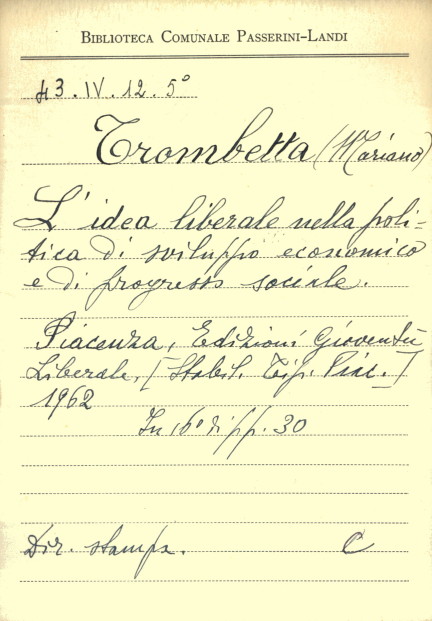 BIBLIOTECA COMUNALE PASSERINI-LANDI
43.IV.12.5°
Trombetta (Mariano)
L'idea liberale nella poli-
tica di sviluppo economico
e di progresso sociale.
Piacenza, Edizioni Gioventù
Liberale, [Stabil. Tip. Piac.]
1962
In 16° di pp. 30
Dir. stampa. C